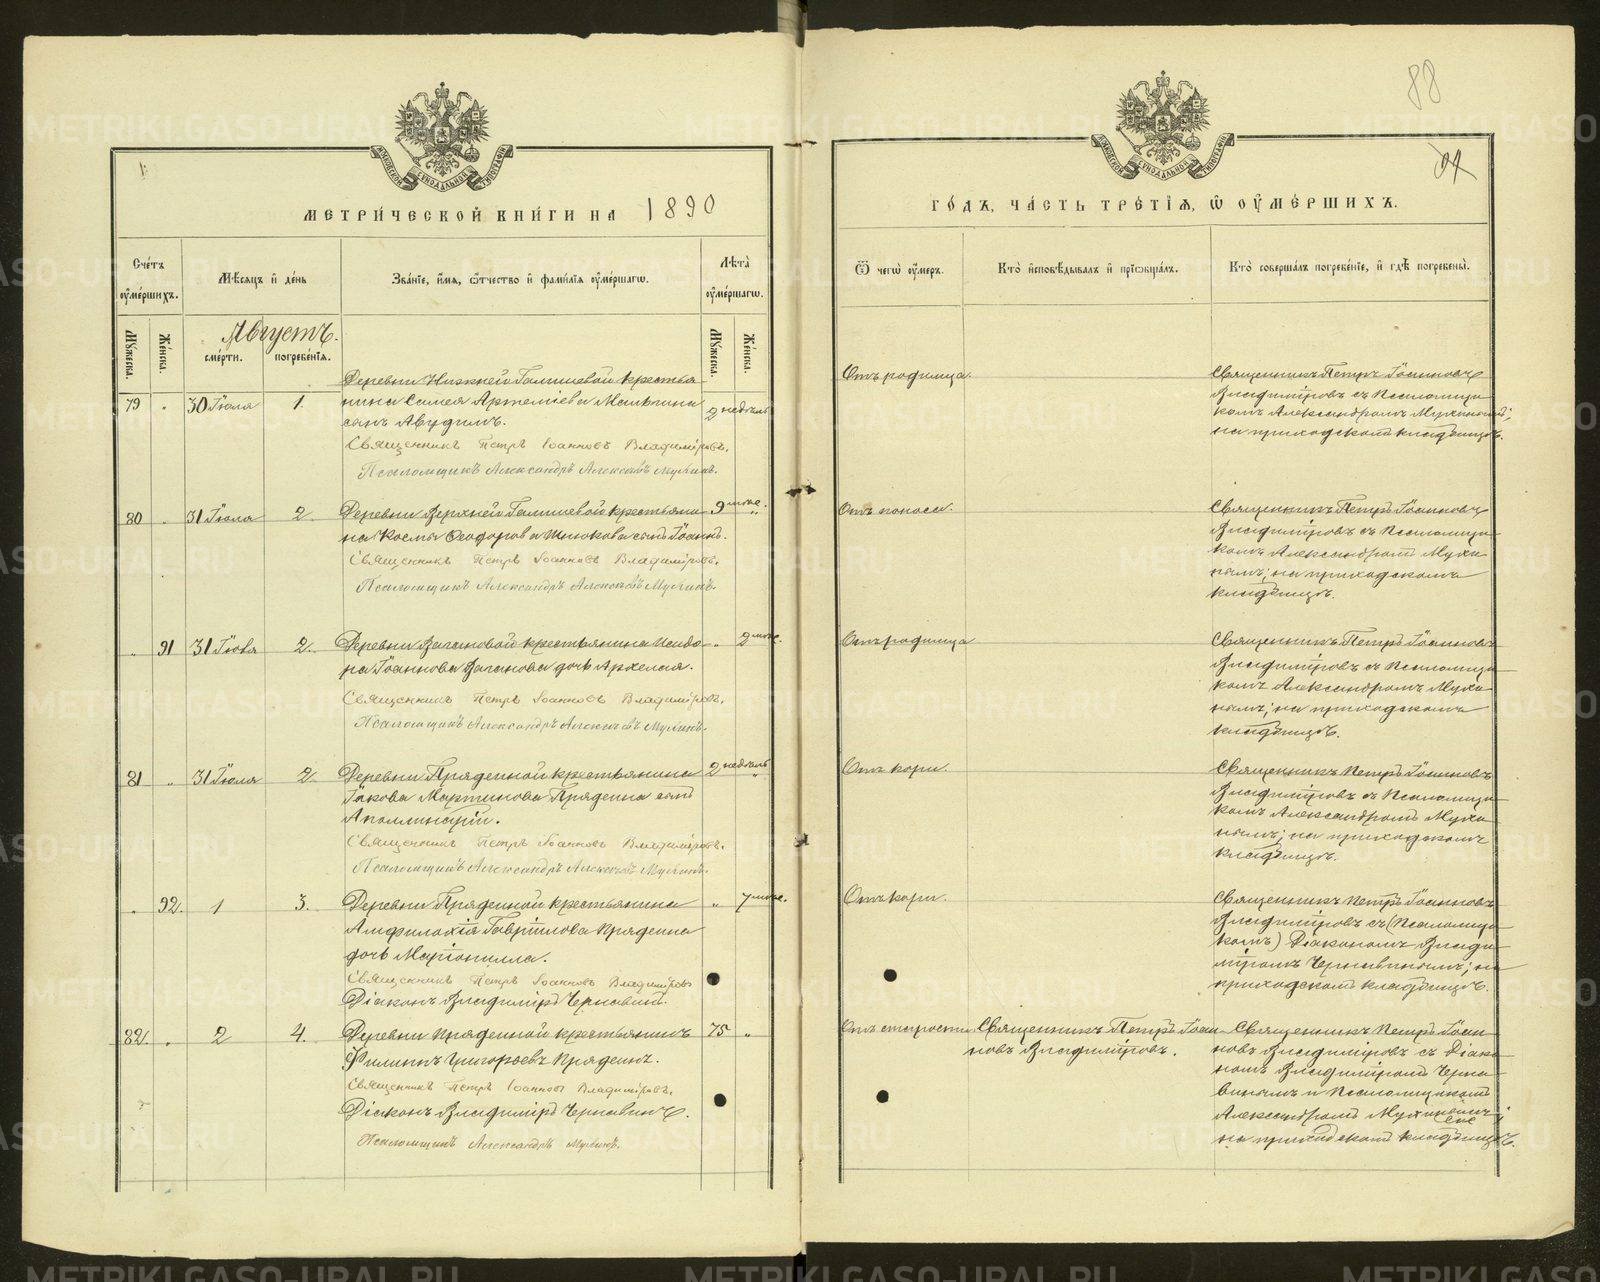 88
97
МОСКОВСКОЙ СѴНОДАЛЬНОЙ ТИПОГРАФІИ
МОСКОВСКОЙ СѴНОДАЛЬНОЙ ТИПОГРАФІИ
МЕТРИ́ЧЕСКОЙ КНИ́ГИ НА 1890
ГО́ДЪ, ЧА́СТЬ ТРЕ́ТІѦ, Ѿ ОУ҆МЕ́РШИХЪ.
Сче́тъ оу҆ме́ршихъ.
Мѣ́сѧцъ и҆ де́нь
Зва́нїе, и҆́мѧ, ѻ҆́тчество и҆ фамилїѧ оу҆ме́ршагѡ.
Лѣ́та оу҆ме́ршагѡ.
Ѿ чегѡ̀ оу҆́меръ.
Кто̀ и҆сповѣ́дывалъ и҆ прїѡбща́лъ.
Кто̀ соверша́лъ погребе́нїе, и҆ гдѣ̀ погребены̀.
Мꙋ́жеска.
Же́нска.
Августъ.
сме́рти.
погребе́нїѧ.
Мꙋ́жеска.
Же́нска.
Деревни Нижней Галишевой крестья
79 " 30 Іюля 1. нина Савея Артеміева Малыгина 2 недѣль
сынъ Авудимъ.
Священникъ Петръ Іоанновъ Владиміровъ.
Псаломщикъ Александръ Алексѣевъ Мухинъ.
Отъ родимца.
Священникъ Петръ Іоанновъ
Владиміровъ съ Псаломщи
комъ Александромъ Мухинымъ;
на приходскомъ кладбищѣ.
80 " 31 Іюля 2. Деревни Верхней Галишевой крестьяни 9 мѣсе. "
на Космы Ѳеодорова Шнюкова сынъ Іоаннъ.
Священникъ Петръ Іоанновъ Владиміровъ.
Псаломщикъ Александръ Алексѣевъ Мухинъ.
Отъ поноса.
Священникъ Петръ Іоанновъ
Владиміровъ съ Псаломщи
комъ Александромъ Мухи
нымъ; на приходскомъ
кладбищѣ.
" 91 31 Іюля 2. Деревни Вагановой крестьянина Исидо " 2 мѣсе.
ра Іоаннова Ваганова дочь Архелая.
Священникъ Петръ Іоанновъ Владиміровъ.
Псаломщикъ Александръ Алексѣевъ Мухинъ.
Отъ родимца
Священникъ Петръ Іоанновъ
Владиміровъ съ Псаломщи
комъ Александромъ Мухи
нымъ; на приходскомъ
кладбищѣ.
81 " 31 Іюля 2. Деревни Пряденной крестьянина 2 недѣль "
Іакова Мартинова Прядеина сынъ
Аполлинарій.
Священникъ Петръ Іоанновъ Владиміровъ.
Псаломщикъ Александръ Алексѣевъ Мухинъ.
Отъ кори.
Священникъ Петръ Іоанновъ
Владиміровъ съ Псаломщи
комъ Александромъ Мухи
нымъ; на приходскомъ
кладбищѣ.
" 92. 1 3. Деревни Пряденной крестьянина " 7 мѣсе.
Амфилохія Гавріилова Прядеина
дочь Маріонилла.
Священникъ Петръ Іоанновъ Владиміровъ
Діаконъ Владиміръ Чернавинъ.
Отъ кори.
Священникъ Петръ Іоанновъ
Владиміровъ съ (Псаломщи
комъ) Діакономъ Влади
міромъ Чернавинымъ; на
приходскомъ кладбищѣ.
82. " 2 4. Деревни Пряденной крестьянинъ 75 "
Филиппъ Григорьевъ Прядеинъ.
Священникъ Петръ Іоанновъ Владиміровъ.
Діаконъ Владиміръ Чернавинъ.
Псаломщикъ Александръ Мухинъ.
Отъ старости
Священникъ Петръ Іоан
новъ Владиміровъ.
Священникъ Петръ Іоан
новъ Владиміровъ съ Діако
номъ Владиміромъ Черна
винымъ и Псаломщикомъ
Александромъ Мухинымъ;
на приходскомъ кладбищѣ.
METRIKI.GASO-URAL.RU